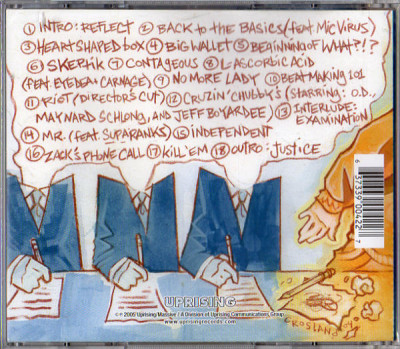 ① INTRO: REFLECT ② BACK TO THE BASICS (feat. Mic Virus)
③ HEART SHAPED BOX ④ BIG WALLET ⑤ BEGINNING OF WHAT?!?
⑥ SKEPTIK ⑦ CONTAGEOUS ⑧ L ASCORBIC ACID
(FEAT. EYEDEA + CARNAGE) ⑨ NO MORE LADY ⑩ BEAT MAKING 101
⑪ RIOT/DIRECTOR'S CUT ⑫ CRUZIN' CHUBBY'S (STARRING: O.D.,
MAYNARD SCHLONG, AND JEFF BOYARDEE) ⑬ INTERLUDE:
EXAMINATION
⑭ MR. (feat. SUPARANKS) ⑮ INDEPENDENT
⑯ ZACK'S PHONE CALL ⑰ KILL 'EM ⑱ OUTRO: JUSTICE
6 57339 00422 7
CROSLAND
UPRISING
©℗ 2005 Uprising Massive / A Division of Uprising Communications Group
www.uprisingrecords.com